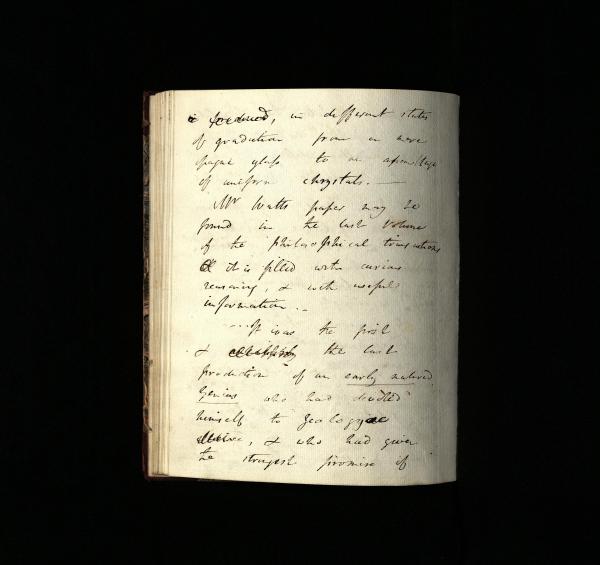 is produced, in different states
of gradation from a mere
opaque glass to an assemblage
of uniform chrystals. —
Mr Watts paper may be
found in the last volume
of the philosophical transactions
& it is filled with curious
reasoning, & with useful
information. –
It was the first
& the last
production of an early matured
Genius who had devoted
himself to Geology
, & who had given
the strongest promise of